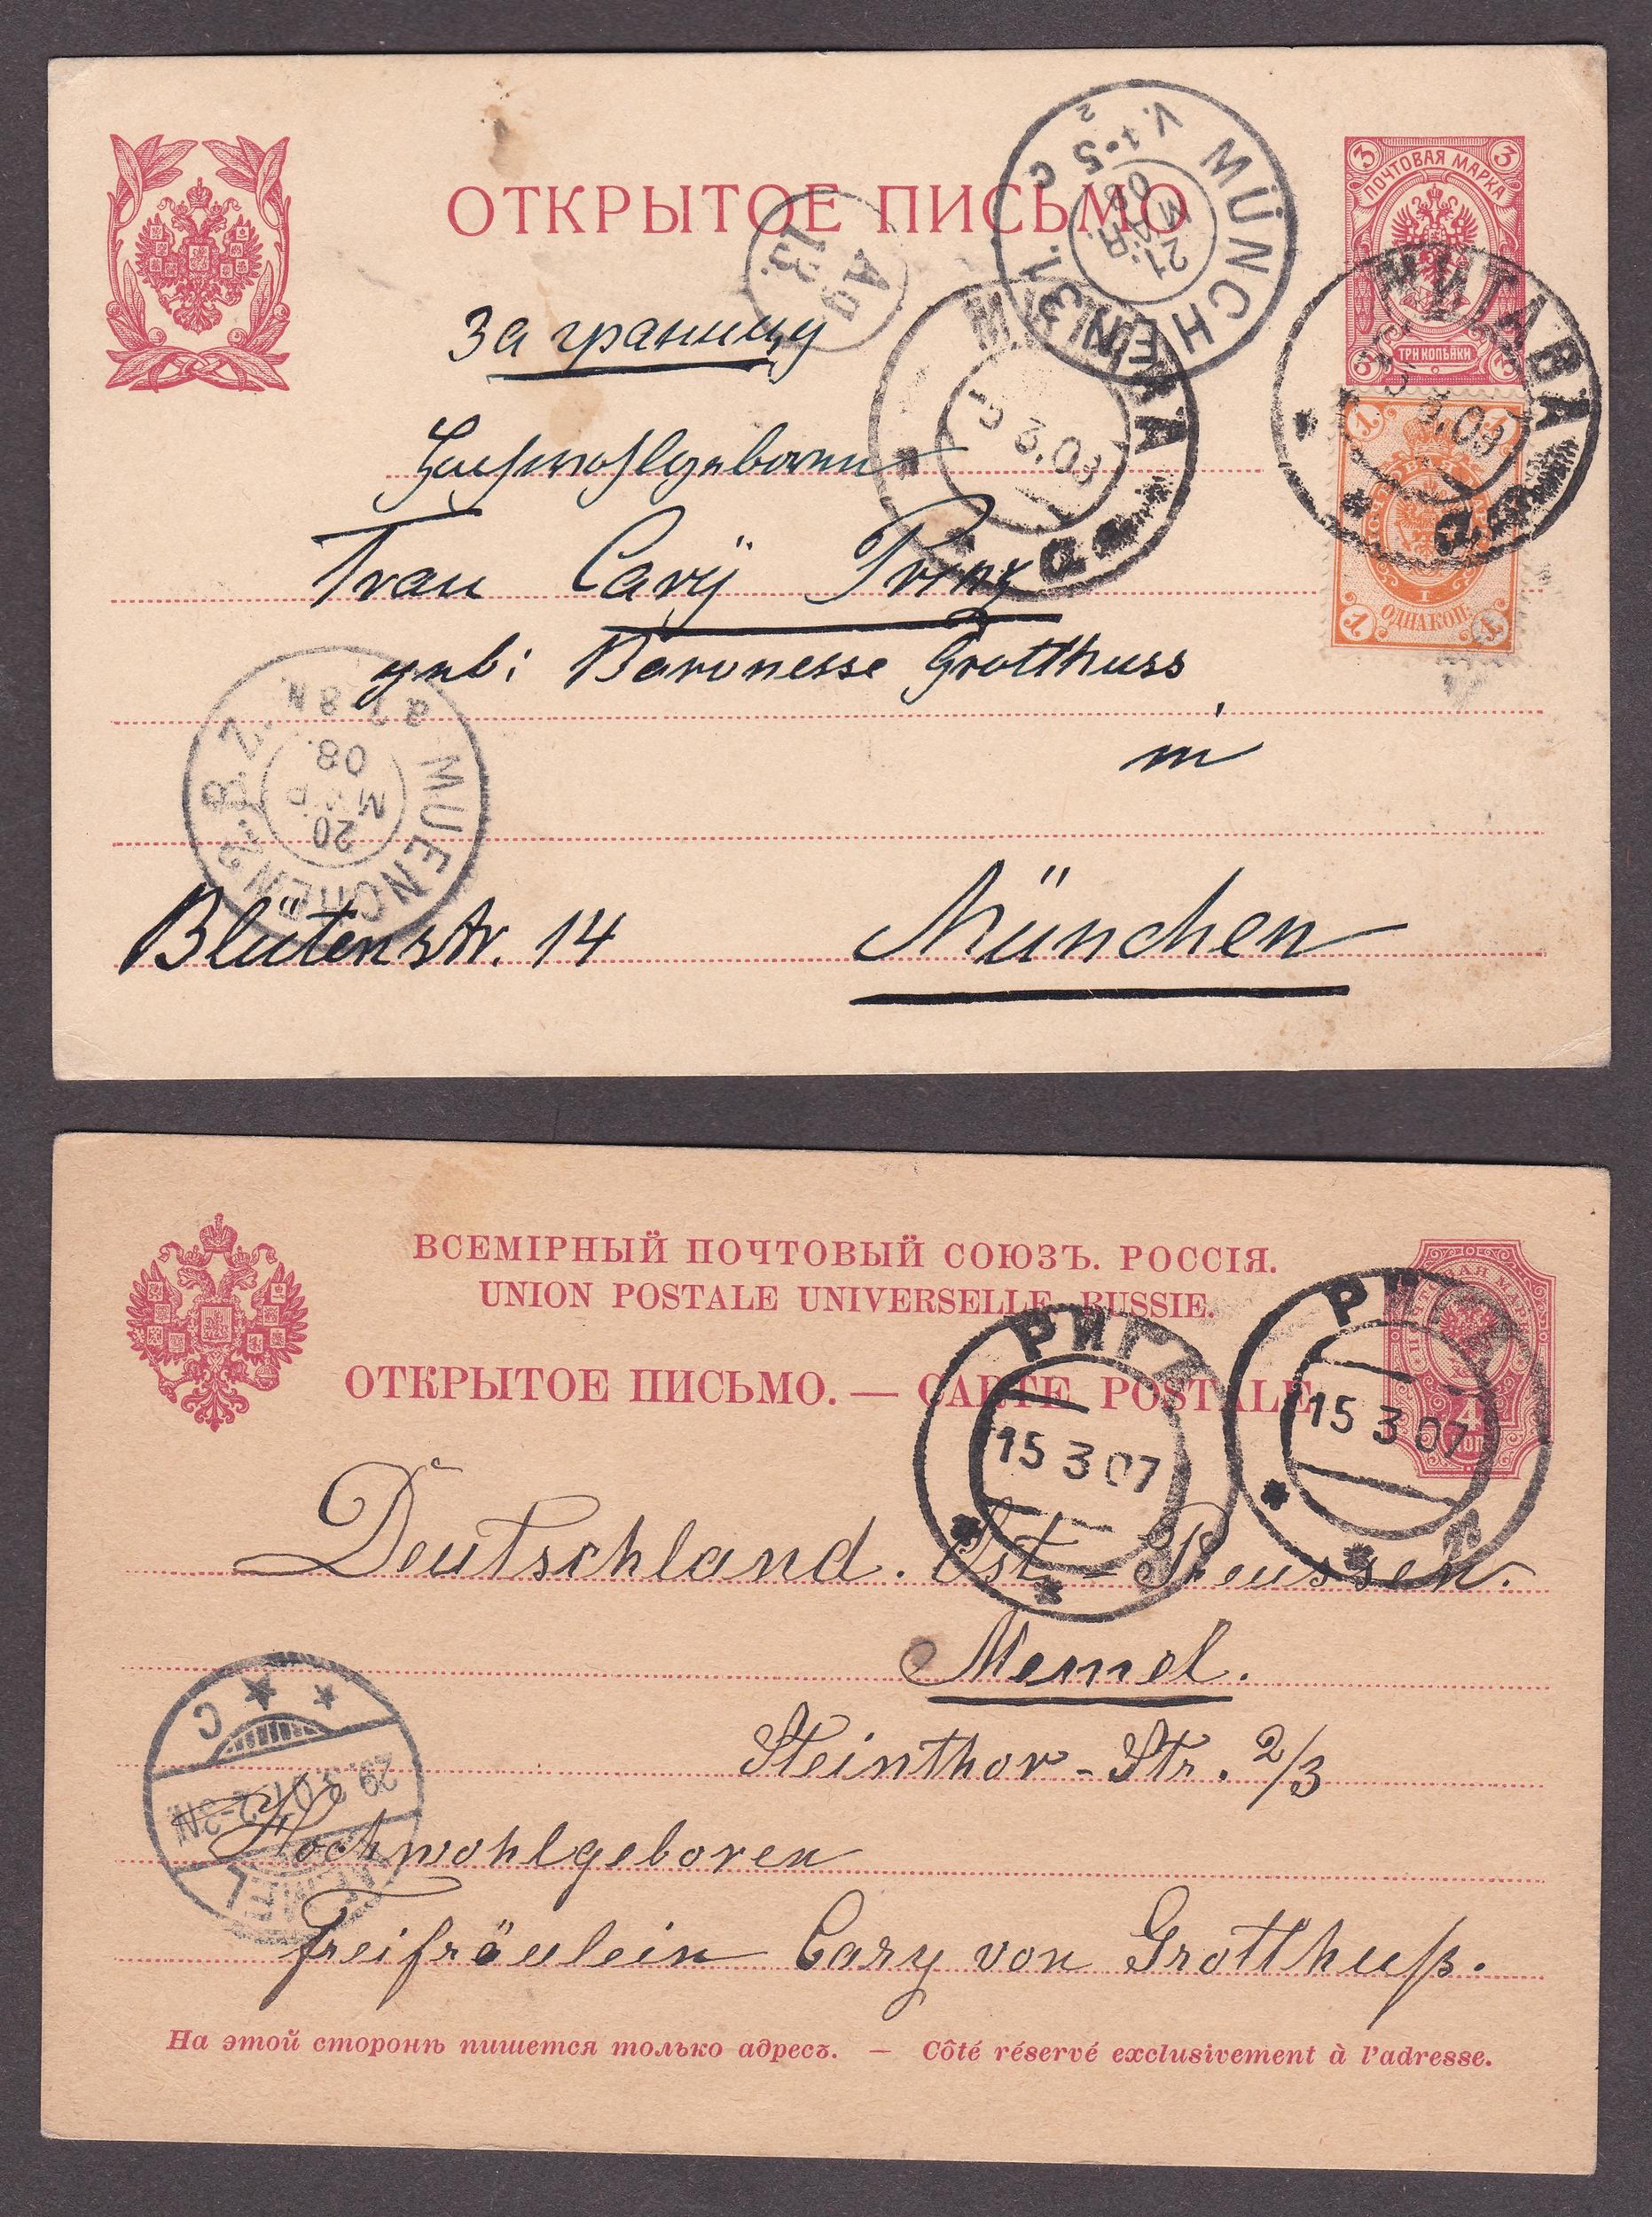 ОТКРЫТОЕ ПИСЬМО
3 ПОЧТОВАЯ МАРКА 3
3 ТРИ КОПѢЙКИ 3
MÜNCHEN 31.
V. 1-5 C
2
21.
MÄR.
08
Ag
13.
МИТАВА
3.03
а
МИТАВА
3.03
а
1 1
1
1 ОДНА КОП. 1
За границу
Hochwohlgeboren
Frau Cary Prinz
geb: Baronesse Grotthuss
in
MUENCHEN 2.B.Z.
20.
MAR
08.
8 N.
Blütenstr. 14 München
ВСЕМІРНЫЙ ПОЧТОВЫЙ СОЮЗЪ. РОССІЯ.
UNION POSTALE UNIVERSELLE. RUSSIE.
ОТКРЫТОЕ ПИСЬМО. — CARTE POSTALE.
4
КОП
РИГА
15 3 07
РИГА
15 3 07
Deutschland. Ost-Preussen.
Memel.
Steinthor-Str. 2/3
MEMEL
29.3.07.2-3N
C
Hochwohlgeboren
Freifräulein Cary von Grotthuß.
На этой сторонѣ пишется только адресъ. — Côté réservé exclusivement à l'adresse.